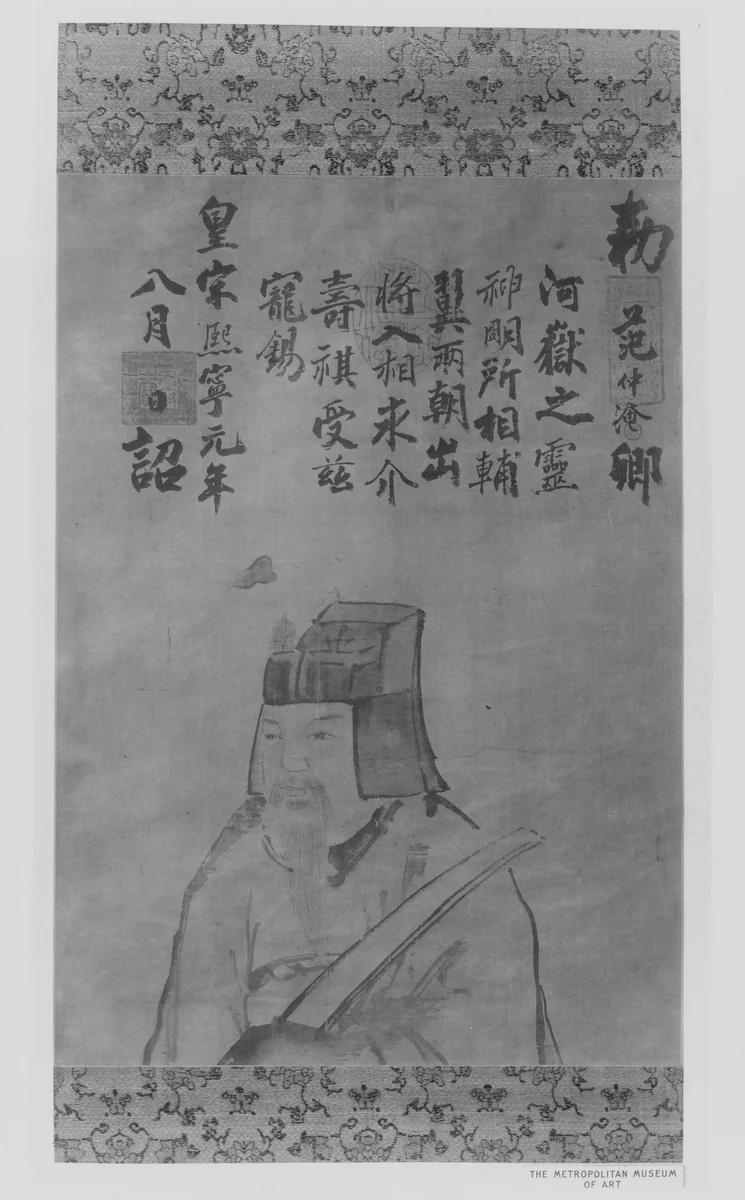 勅范仲淹卿
河嶽之靈
神明所相輔
翼兩朝出
將入相永介
壽祺受茲
寵錫
皇宋熙寧元年
八月日詔
THE METROPOLITAN MUSEUM
OF ART